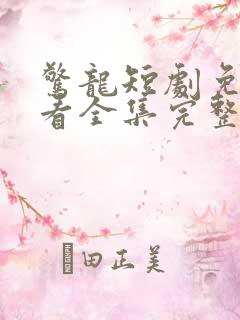 驚龍短劇免
看全集完整
田正美